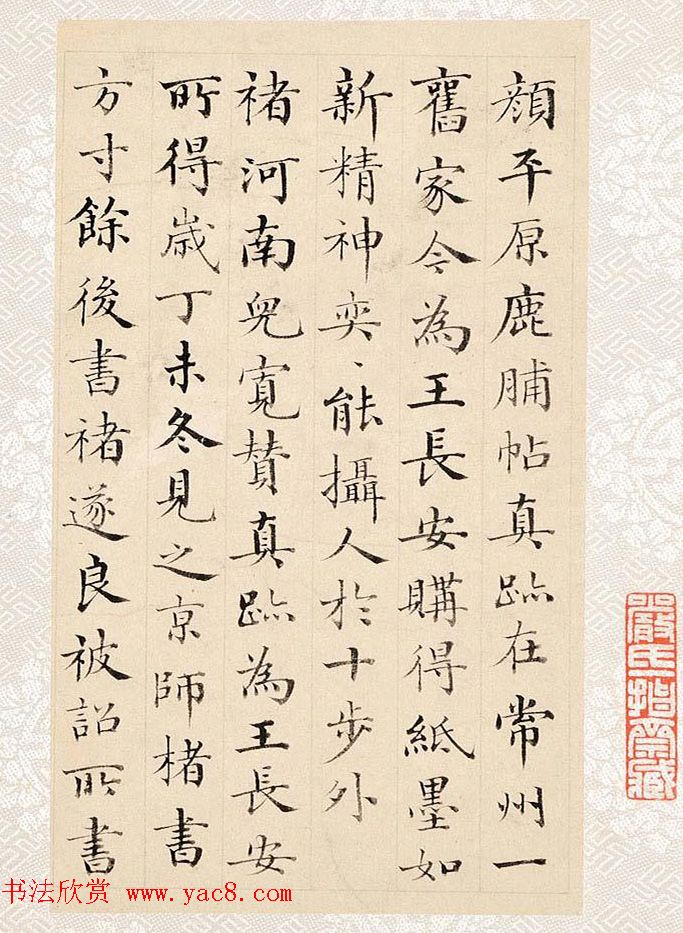 顔平原鹿脯帖真跡在常州一
舊家今為王長安購得紙墨如
新精神奕、能攝人於十步外
褚河南兒寬賛真跡為王長安
所得歲丁未冬見之京師楮書
方寸餘後書褚遂良被詔所書
書法欣赏 www.yac8.com